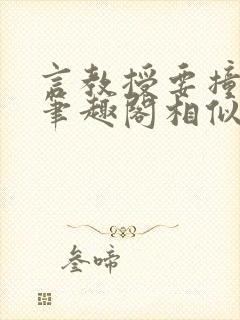 言教授要撞
笔趣阁相似
叁啼